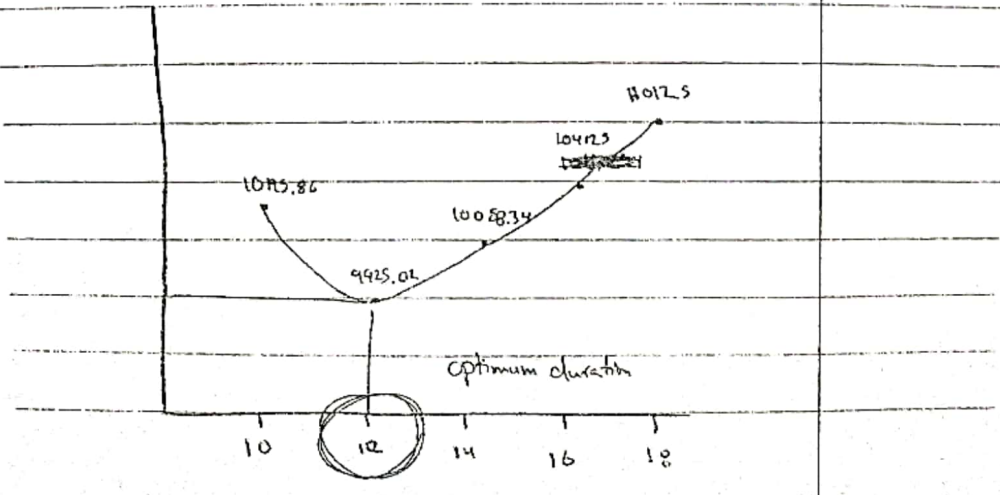 11012.5
10412.5
10175.86
10058.34
9925.02
optimum duration
10 12 14 16 18